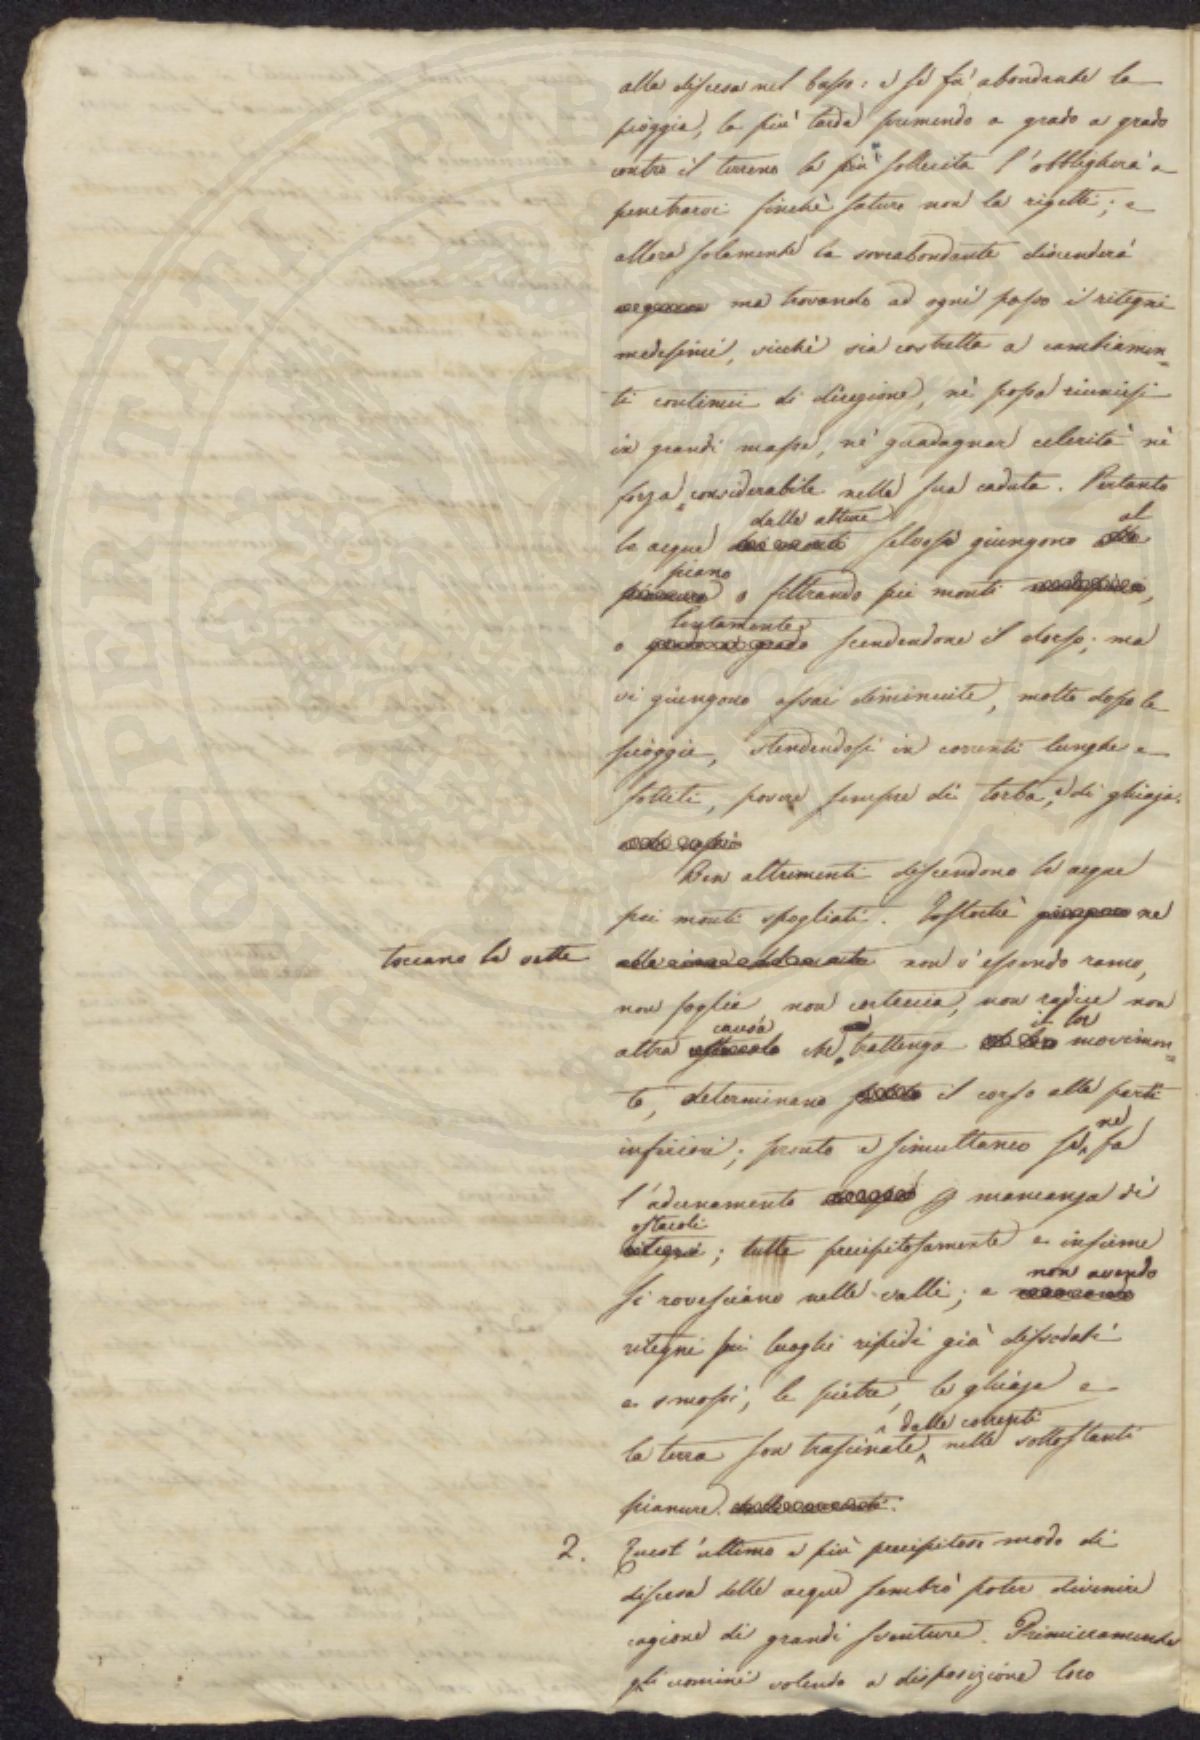 alla discesa nel basso: e se fia abondante la
pioggia, la più tarda premendo a grado a grado
contro il terreno la più sollecita l'obbligherà a
penetrarvi finchè saturo non la rigetti; e
allora solamente la sovrabondante discenderà
ma trovando ad ogni passo i ritegni
medesimi, sicchè sia costretta a cambiamen=
ti continui di direzione, nè possa riunirsi
in grandi masse, nè guadagnar celerità nè
forza considerabile nella sua caduta. Pertanto
dalle alture al
le acque dai monti selvosi giungono alla
piano
pianura o filtrando pei monti medesimi,
lentamente
o grado a grado scendendone il dorso; ma
vi giungono assai diminuite, molto dopo le
pioggie, stendendosi in correnti lunghe e
sottili, povere sempre di torba, e di ghiaja.
Ben altrimenti descendono le acque
pei monti spogliati. Tostochè giungono ne
toccano le vette non v'essendo ramo,
non foglia non corteccia, non radice non
causa il lor
altra ostacolo che trattenga movimen=
to, determinano il corso alle parti
ne
inferiori; pronto e simultaneo se fa
l'adunamento p mancanza di
ostacoli
ritegni; tutte precipitosamente e insieme
non avendo
si rovesciano nelle valli; e
ritegni pei luoghi ripidi già dissodati
e smossi, le pietre, le ghiaje e
dalle correnti
la terra son trascinate nelle sottostanti
pianure.
2. Quest'ultimo e più precipitoso modo di
discesa delle acque sembrò poter divenire
cagione di grandi sventure. Primieramente
gli uomini volendo a disposizione loro